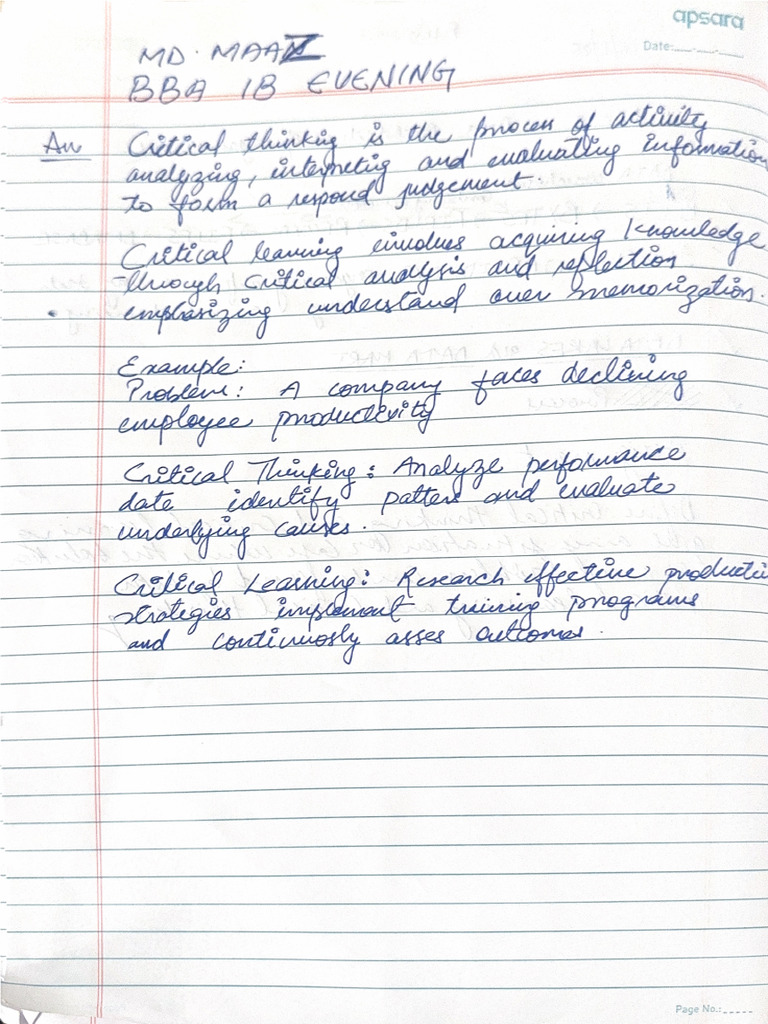 apsara
Date:
MD. MAAZ
BBA 1B EVENING
An Critical thinking is the process of activity
analyzing, interpretig and evaluating information
to form a respond judgement.
Critical learning involves acquiring knowledge
through critical analysis and reflection
emphasizing understand over memorization.
Example:
Problem: A company faces declining
employee productivity
Critical Thinking: Analyze performance
date identify patters and evaluate
underlying causes.
Critical Learning: Research effective producti
strategies implement training programs
and continuosly asses outcomes.
Page No.: